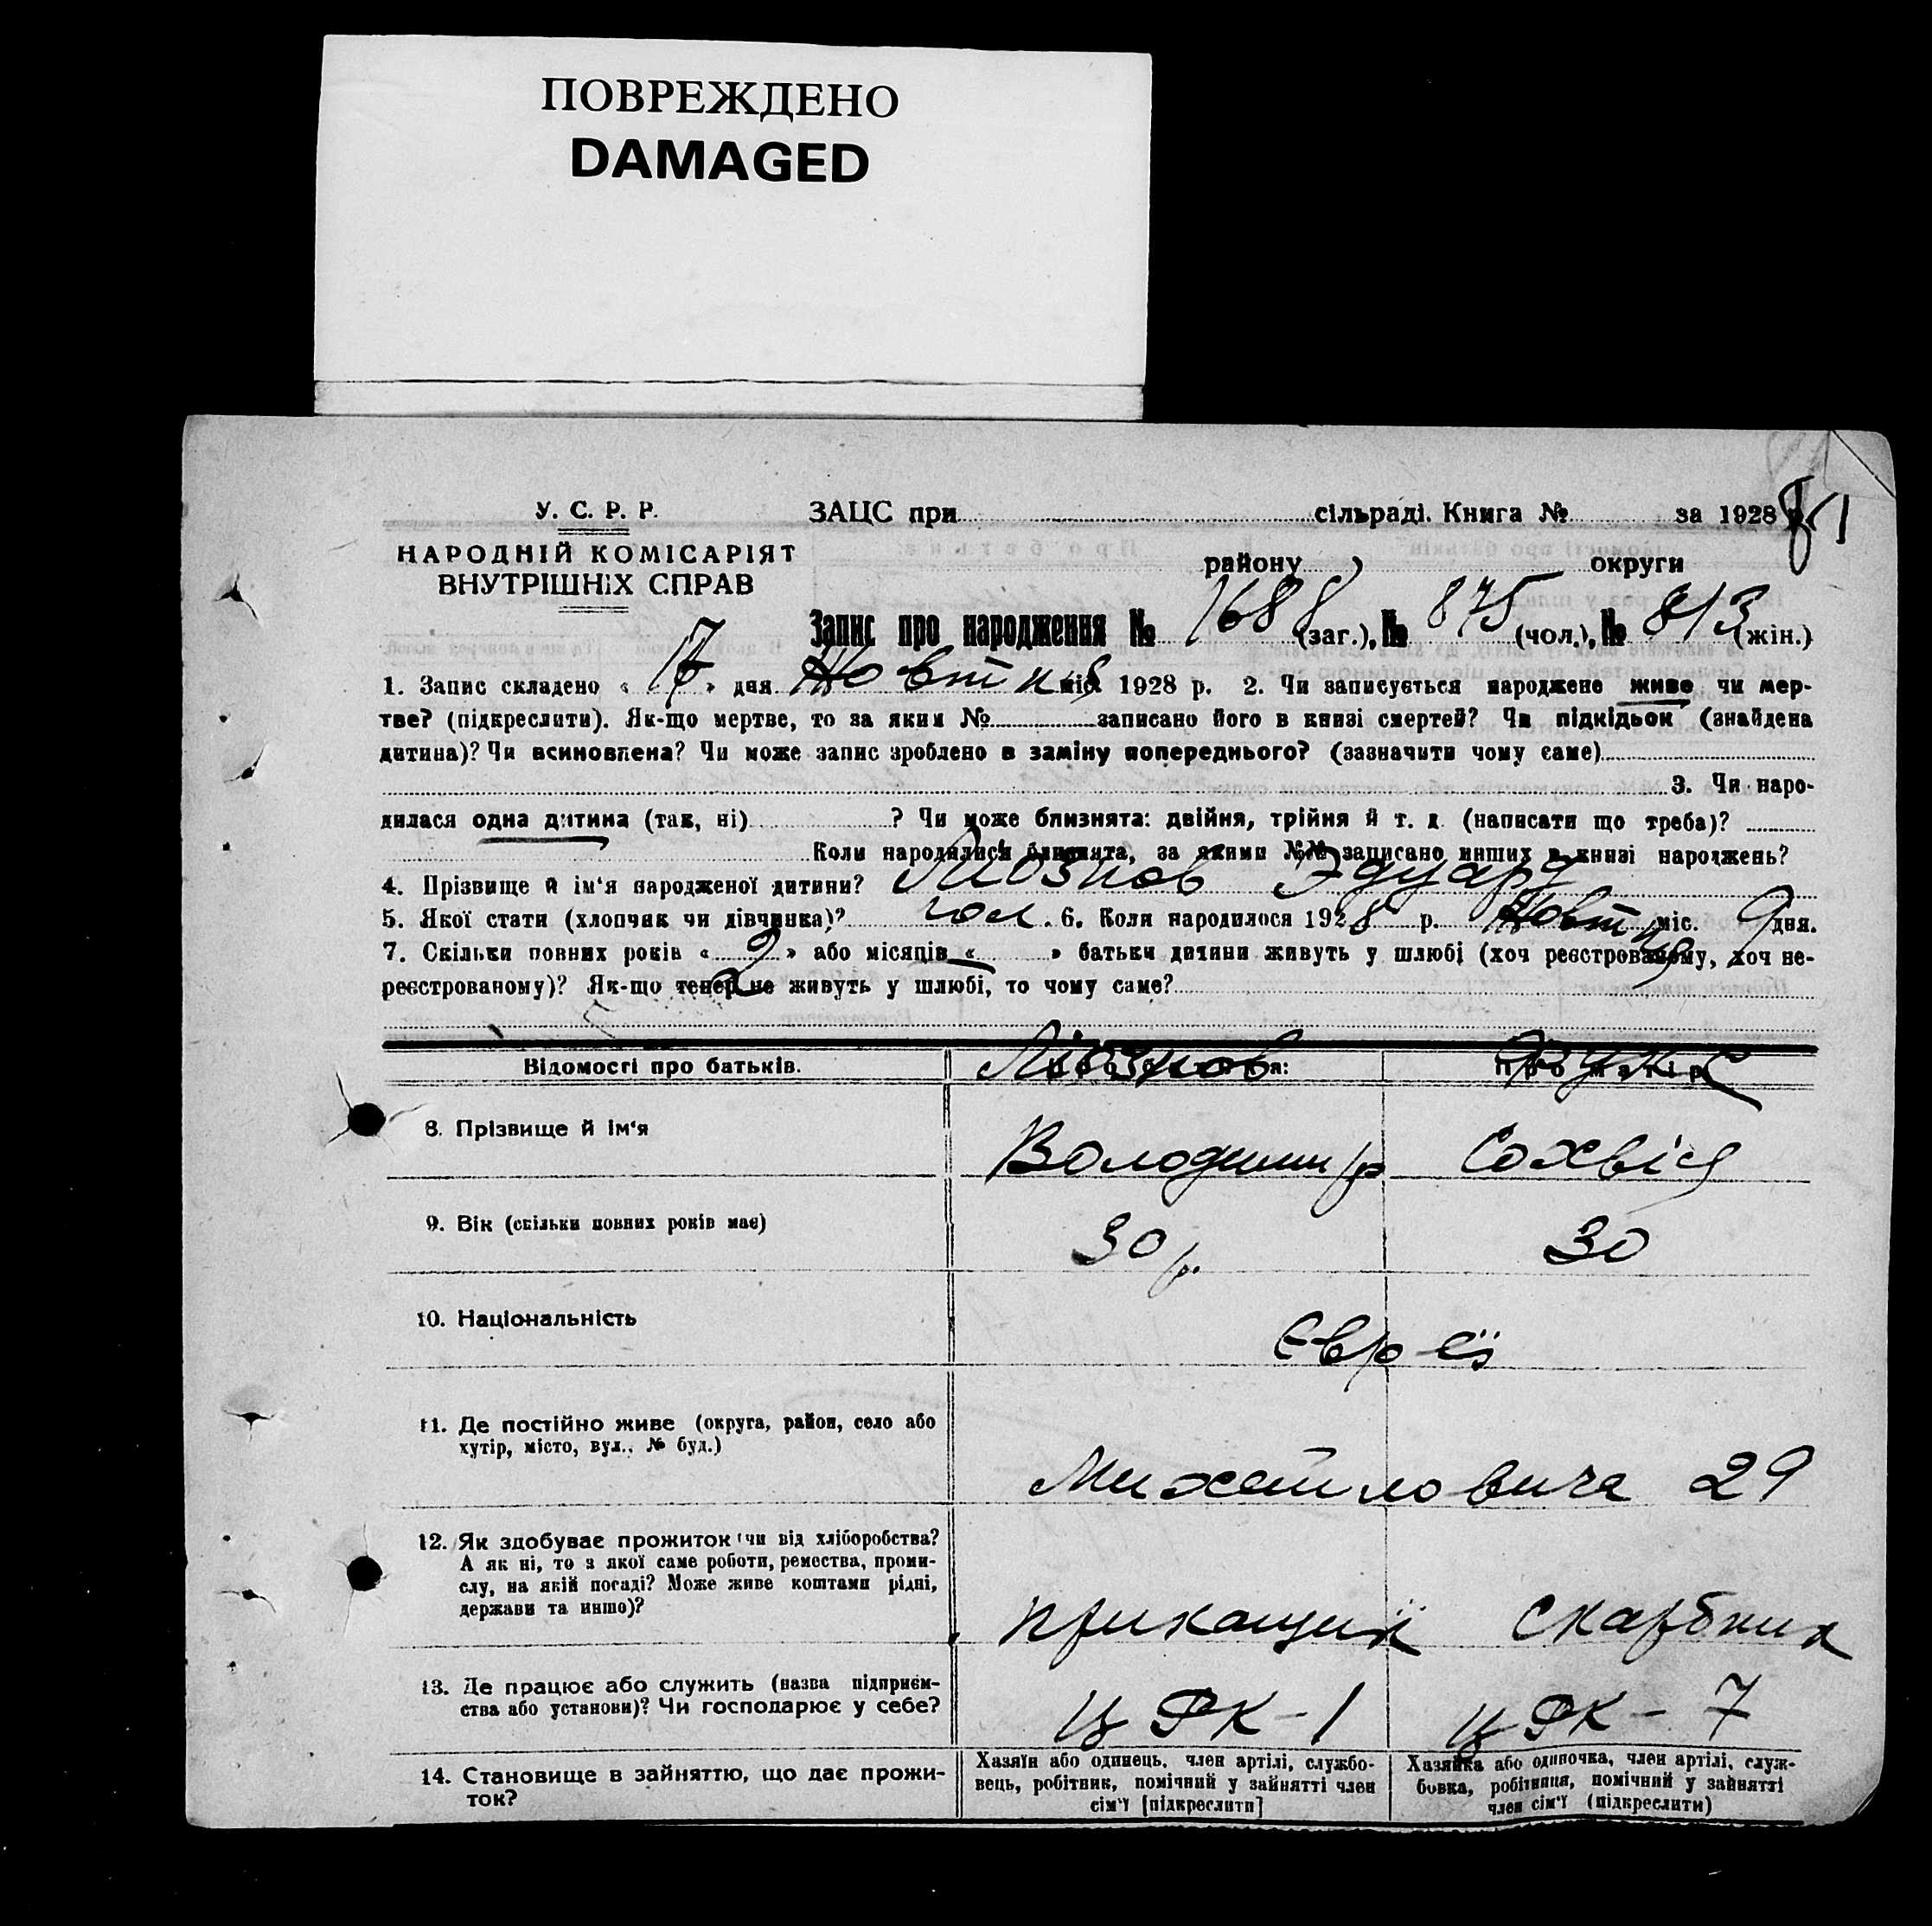 ПОВРЕЖДЕНО
DAMAGED
У. С. Р. Р.
НАРОДНІЙ КОМІСАРІЯТ
ВНУТРІШНІХ СПРАВ
ЗАЦС при сільраді. Книга № за 1928
району округи
Запис про народження № 1688 (заг.), № 875 (чол.), № 813 (жін.)
1. Запис складено « 17 » дня Жовтня міс. 1928 р. 2. Чи записується народжене живе чи мер-
тве? (підкреслити). Як-що мертве, то за яким № записано його в книзі смертей? Чи підкідьок (знайдена
дитина)? Чи всиновлена? Чи може запис зроблено в заміну попереднього? (зазначити чому саме)
3. Чи наро-
дилася одна дитина (так, ні) ? Чи може близнята: двійня, трійня й т. д. (написати що треба)?
Коли народилися близнята, за якими №№ записано инших в книзі народжень?
4. Прізвище й ім'я народженої дитини? Эдуард
5. Якої стати (хлопчик чи дівчинка)? чол. 6. Коли народилося 1928 р. Жовтня міс. 9 дня.
7. Скільки повних років « 2 » або місяців « » батьки дитини живуть у шлюбі (хоч реєстрованому, хоч не-
реєстрованому)? Як-що тепер не живуть у шлюбі, то чому саме?
Відомості про батьків.
8. Прізвище й ім'я
Володимир Сохвія
9. Вік (скільки повних років має)
30 р. 30
10. Національність
Євреї
11. Де постійно живе (округа, район, село або
хутір, місто, вул., № буд.)
Михайловича 29
12. Як здобуває прожиток (чи від хліборобства?
А як ні, то з якої саме роботи, ремества, проми-
слу, на якій посаді? Може живе коштами рідні,
держави та инше)?
прикащик Скарбник
13. Де працює або служить (назва підприєм-
ства або установи)? Чи господарює у себе?
ЦРК - 1 ЦРК - 7
14. Становище в зайняттю, що дає прожи-
ток?
Хазяїн або одинець, член артілі, службо-
вець, робітник, помічний у зайнятті член
сім'ї [підкреслити]
Хазяйка або одиночка, член артілі, служ-
бовка, робітниця, помічний у зайнятті
член сім'ї (підкреслити)